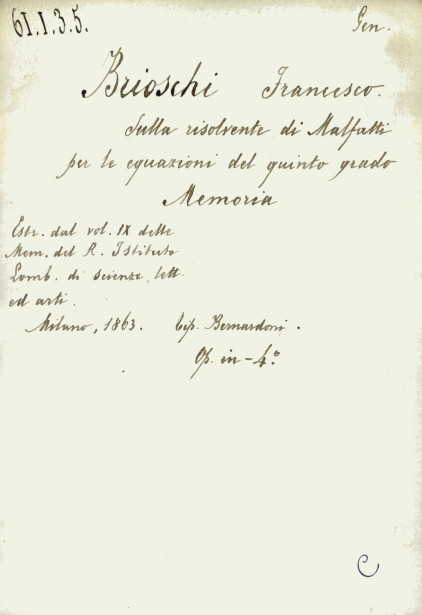 61.1.3.5.
Gen.
Brioschi Francesco.
Sulla risolvente di Malfatti
per le equazioni del quinto grado
Memoria
Estr. dal vol. IX delle
Mem. del R. Istituto
Lomb. di scienze, lett.
ed arti.
Milano, 1863. Tip. Bernardoni.
Op. in-4.°
C